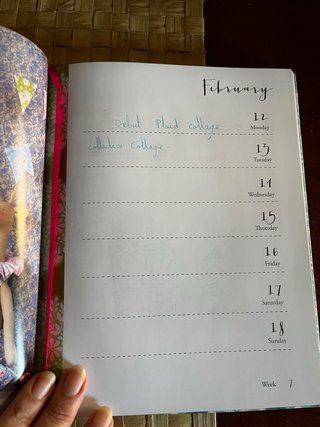 February
12
Monday
Debut Plaid Collage
13
Tuesday
collection Collage
14
Wednesday
15
Thursday
16
Friday
17
Saturday
18
Sunday
Week 7